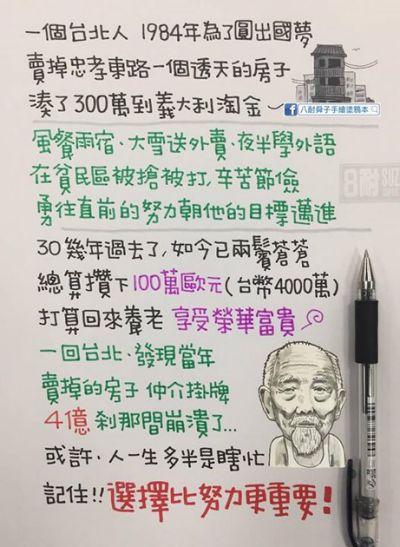 一個台北人 1984年為了圓出國夢
賣掉忠孝東路一個透天的房子
湊了300萬到義大利淘金
八耐舜子手繪塗鴉本
風餐雨宿、大雪送外賣、夜半學外語
在貧民區被搶被打, 辛苦節儉
勇往直前的努力朝他的目標邁進
30幾年過去了, 如今已兩鬢蒼蒼
總算攢下100萬歐元(台幣4000萬)
打算回來養老 享受榮華富貴
一回台北、發現當年
賣掉的房子 仲介掛牌
4億 剎那間崩潰了...
或許、人一生多半是瞎忙
記住!! 選擇比努力更重要!